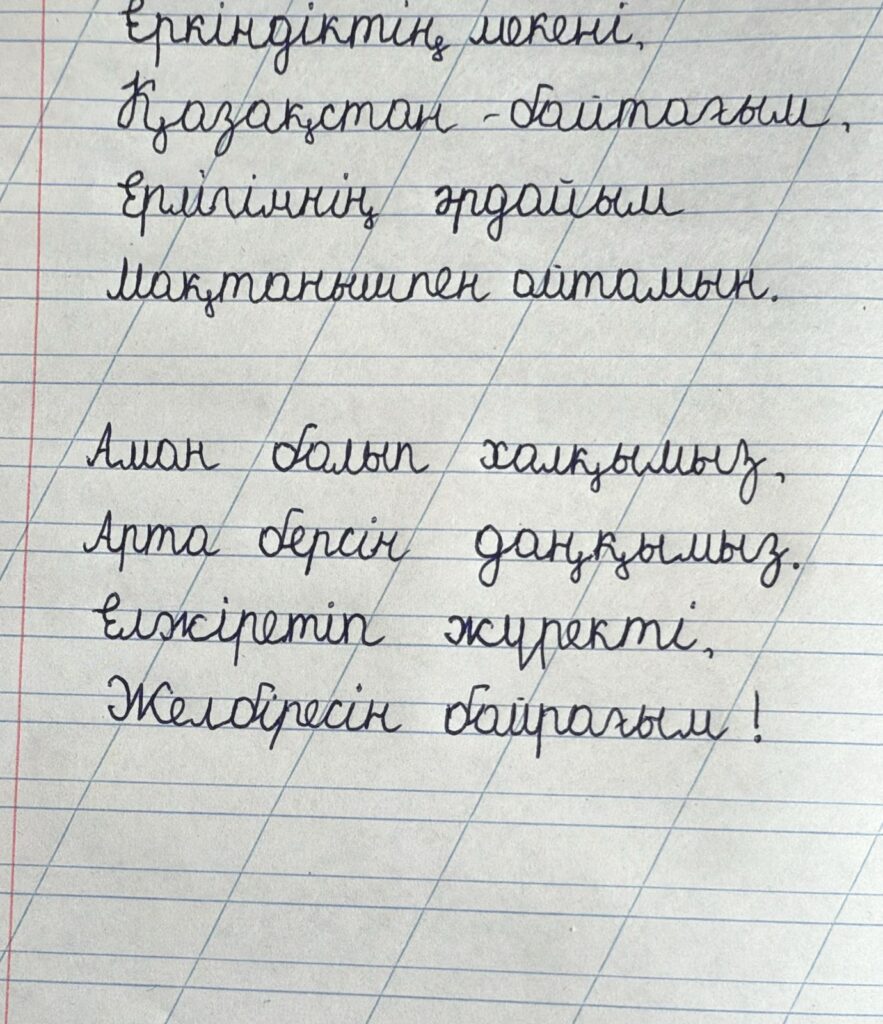 Еркіндіктің мекені,
Қазақстан - байтағым,
Ерлігімнің әрдайым
Мақтанышпен айтамын.
Аман болып халқымыз,
Арта берсін даңқымыз.
Елжіретіп жүректі,
Желбіресін байрағым!